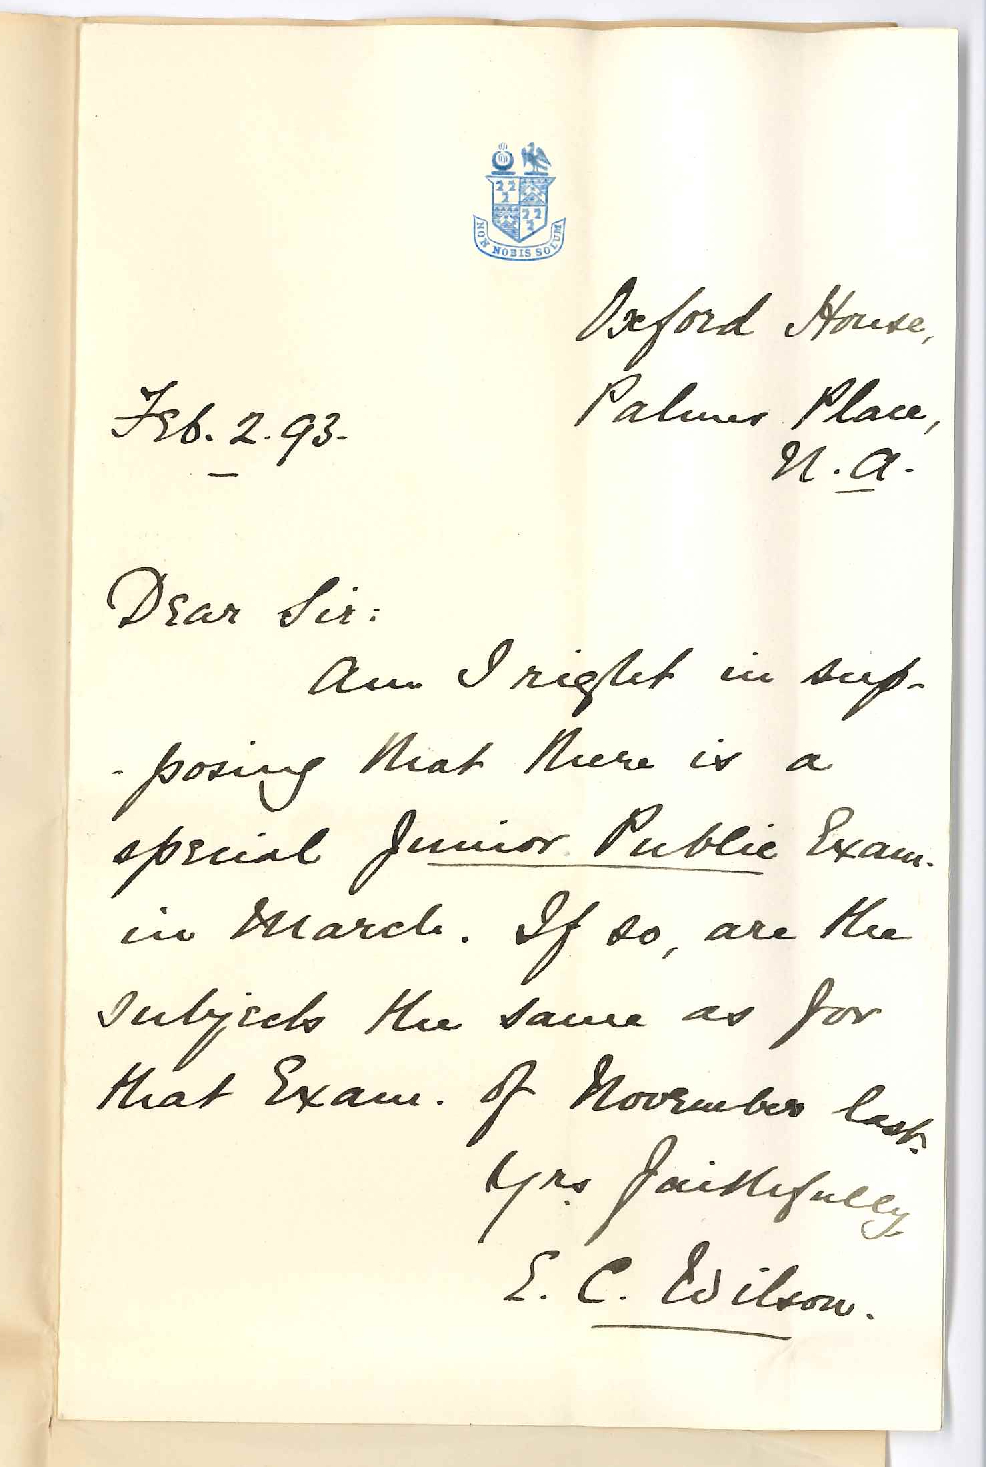 NON NOBIS SOLUM
Oxford House,
Palmer Place,
N.A.
Feb. 2. 93.
Dear Sir:
Am I right in sup-
-posing that there is a
special Junior Public Exam.
in March. If so, are the
subjects the same as for
that Exam. of November last.
Yrs. faithfully
E. C. Wilson.